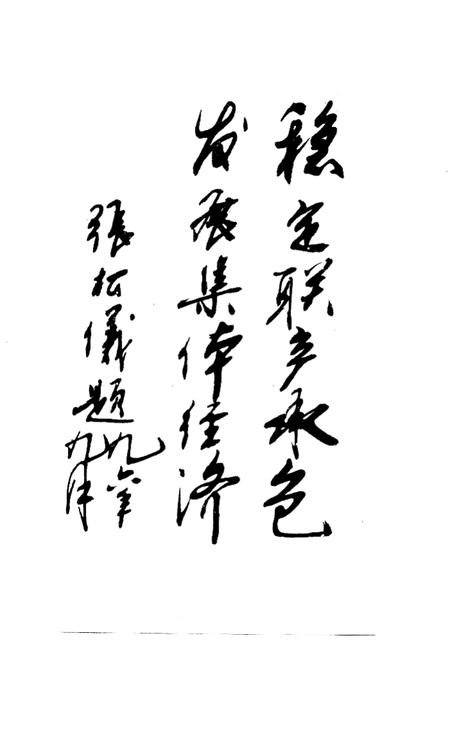 稳定联产承包
发展集体经济
張松儀题
九六年
九月